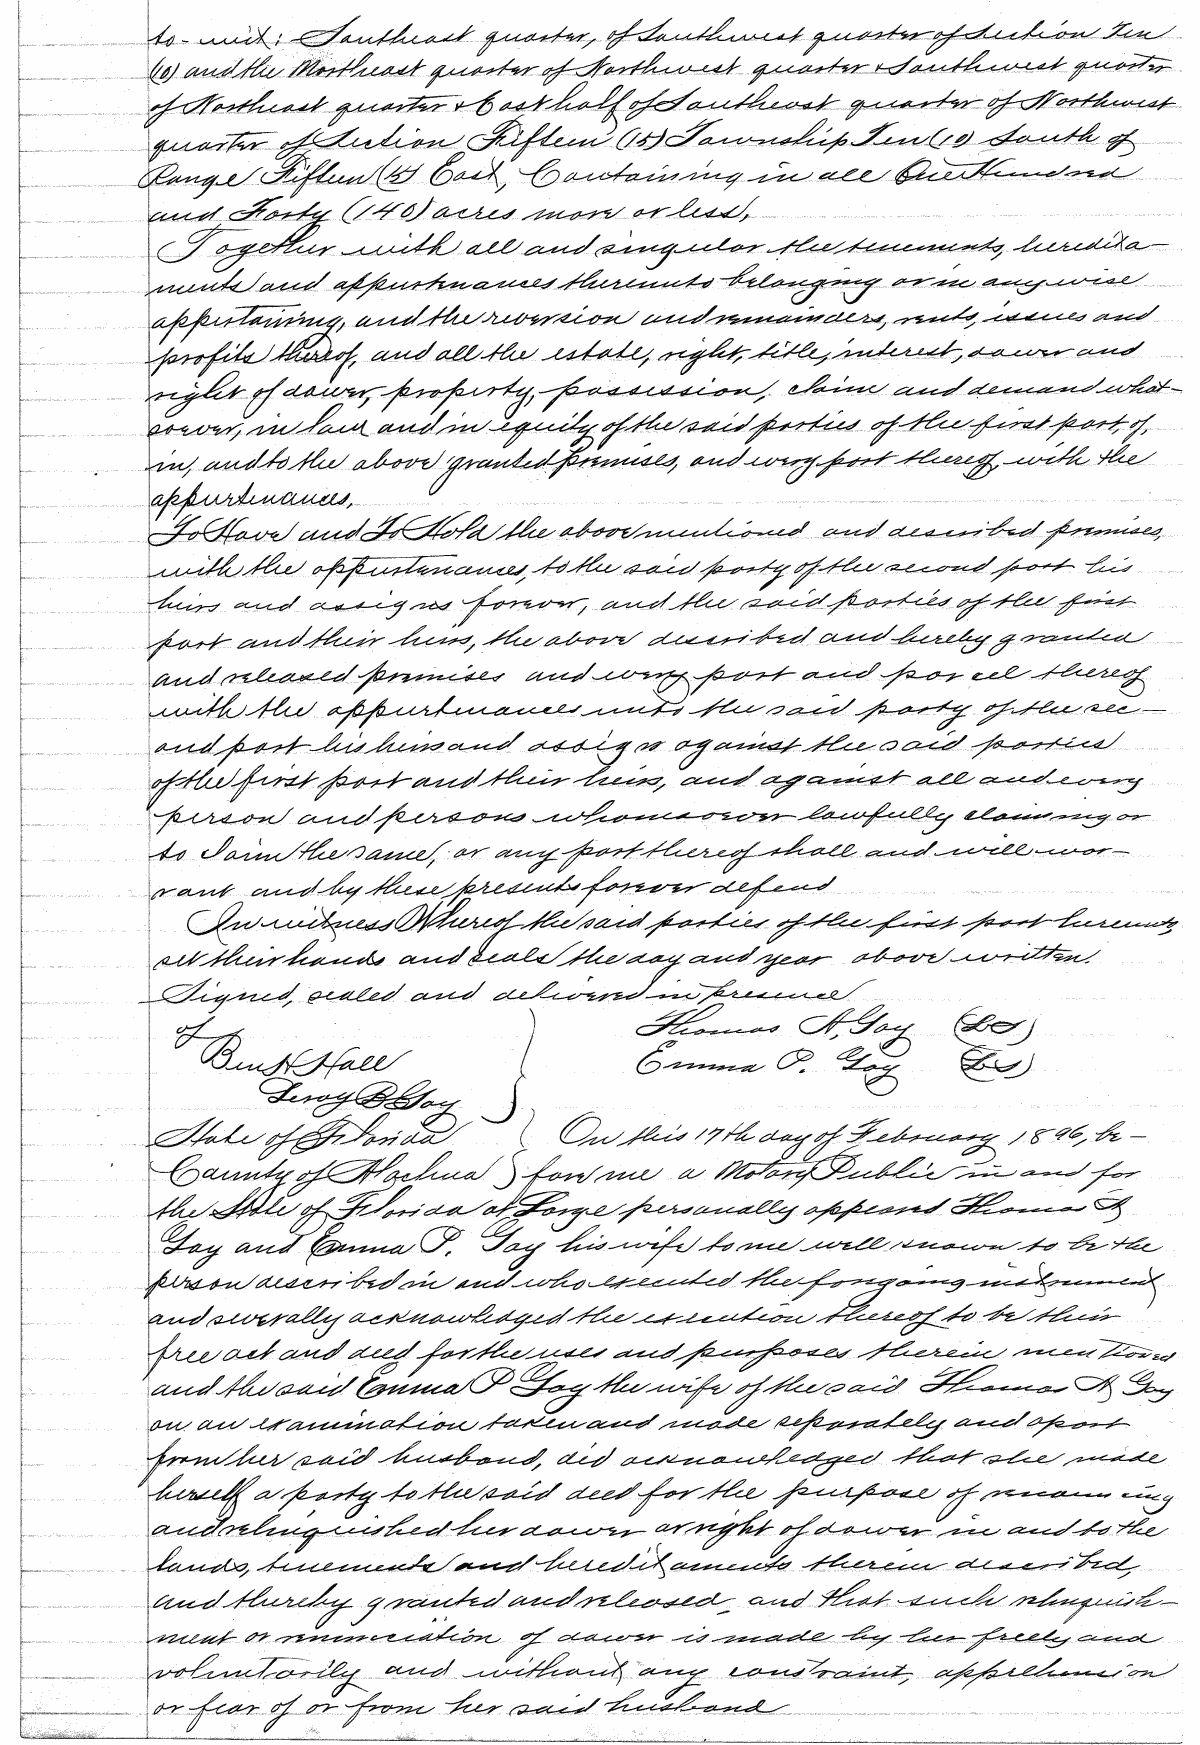 to-wit: Southeast quarter, of Southwest quarter of Section Ten
(10) and the Northeast quarter of Northwest quarter & Southwest quarter
of Northeast quarter & East half of Southeast quarter of Northwest
quarter of Section Fifteen (15) Township Ten (10) South of
Range Fifteen (15) East, Containing in all One Hundred
and Forty (140) acres more or less,
Together with all and singular the tenements, heredita-
ments and appurtenances thereunto belonging or in anywise
appertaining, and the reversion and remainders, rents, issues and
profits thereof, and all the estate, right, title, interest, dower and
right of dower, property, possession, claim and demand what-
soever, in law and in equity of the said parties of the first part, of,
in, and to the above granted premises, and every part thereof, with the
appurtenances,
To Have and To Hold the above mentioned and described premises,
with the appurtenances, to the said party of the second part his
heirs and assigns forever, and the said parties of the first
part and their heirs, the above described and hereby granted
and released premises and every part and parcel thereof
with the appurtenances unto the said party of the sec-
ond part his heirs and assigns against the said parties
of the first part and their heirs, and against all and every
person and persons whomsoever lawfully claiming or
to claim the same, or any part thereof shall and will war-
rant and by these presents forever defend
In witness Whereof the said parties of the first part hereunto
set their hands and seals the day and year above written.
Signed, sealed and delivered in presence
of Thomas A, Gay (LS)
Benj H Hall Emma P. Gay (LS)
Leroy B Gay
State of Florida ) On this 17th day of February 1896, be-
County of Alachua ) fore me a Notary Public in and for
the State of Florida at Large personally appeared Thomas A
Gay and Emma P. Gay his wife to me well known to be the
person described in and who executed the foregoing instrument
and severally acknowledged the execution thereof to be their
free act and deed for the uses and purposes therein mentioned
and the said Emma P Gay the wife of the said Thomas A Gay
on an examination taken and made separately and apart
from her said husband, did acknowledged that she made
herself a party to the said deed for the purpose of renouncing
and relinquished her dower or right of dower in and to the
lands, tenements and hereditaments therein described,
and thereby granted and released, and that such relinquish-
ment or renunciation of dower is made by her freely and
voluntarily and without any constraint, apprehension
or fear of or from her said husband